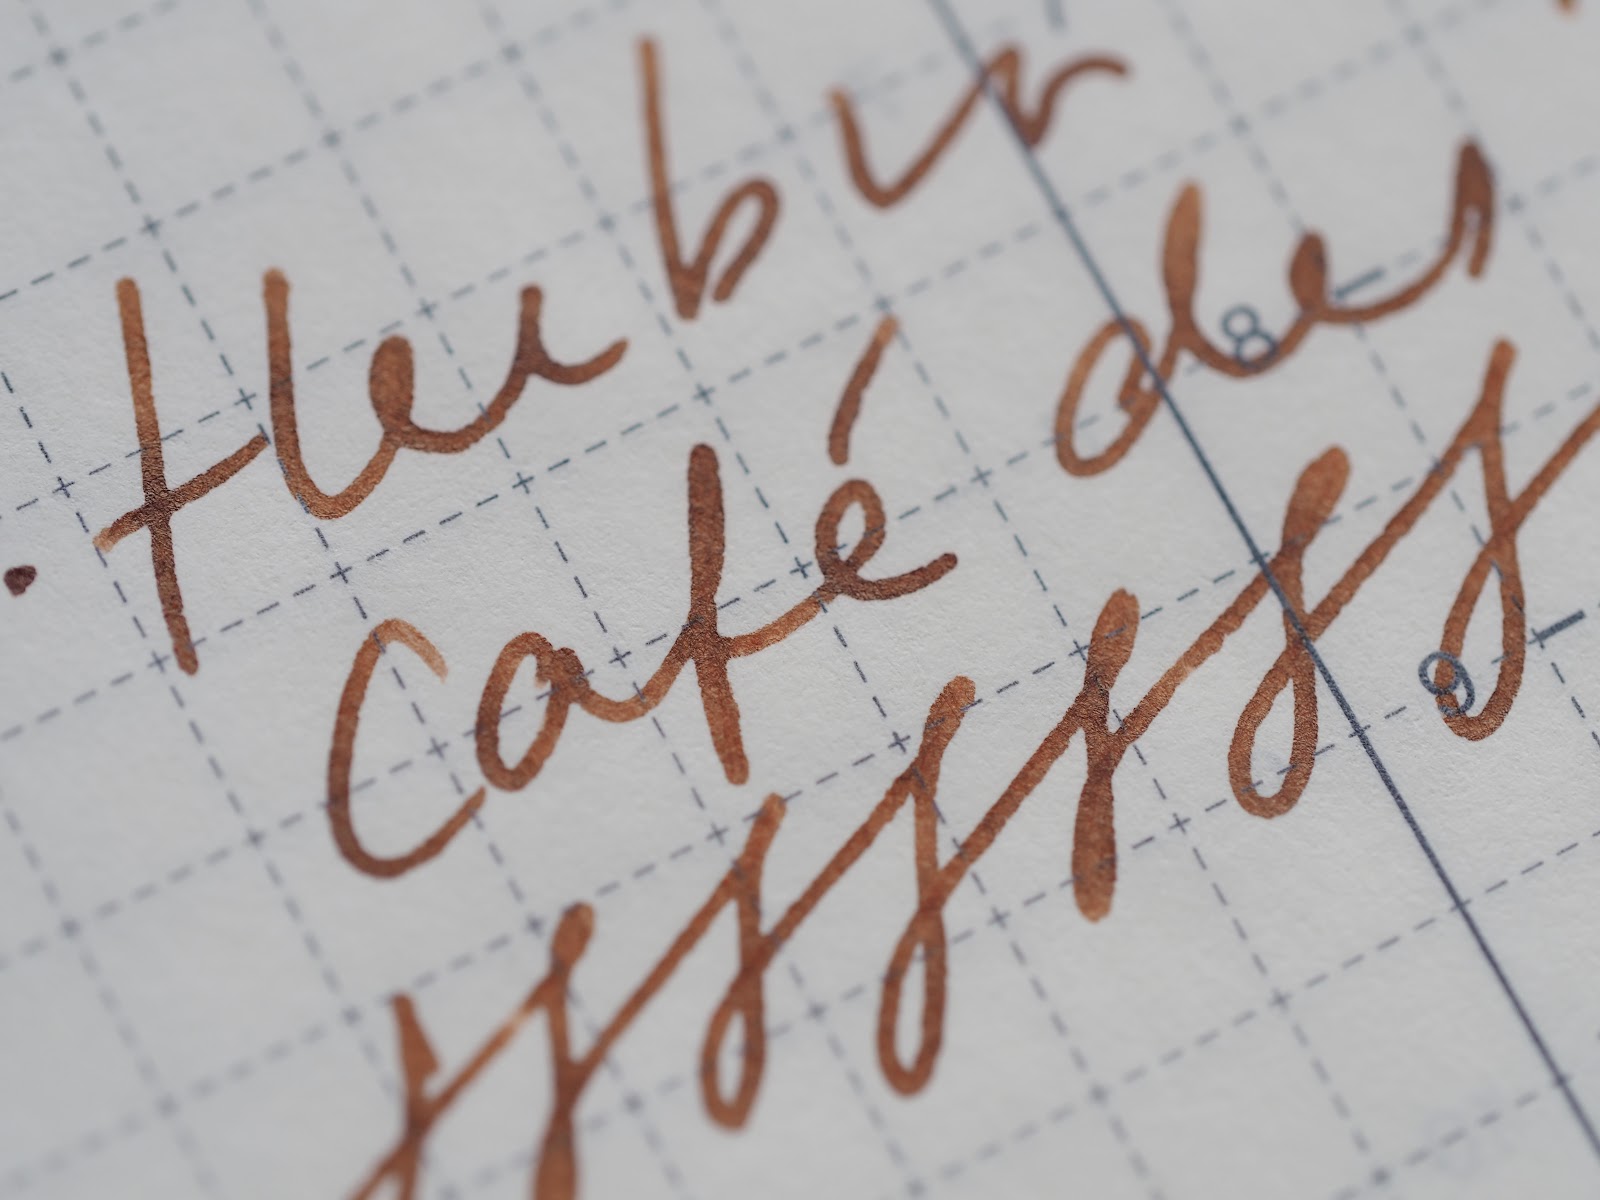 . Herbin
Café des
8
9